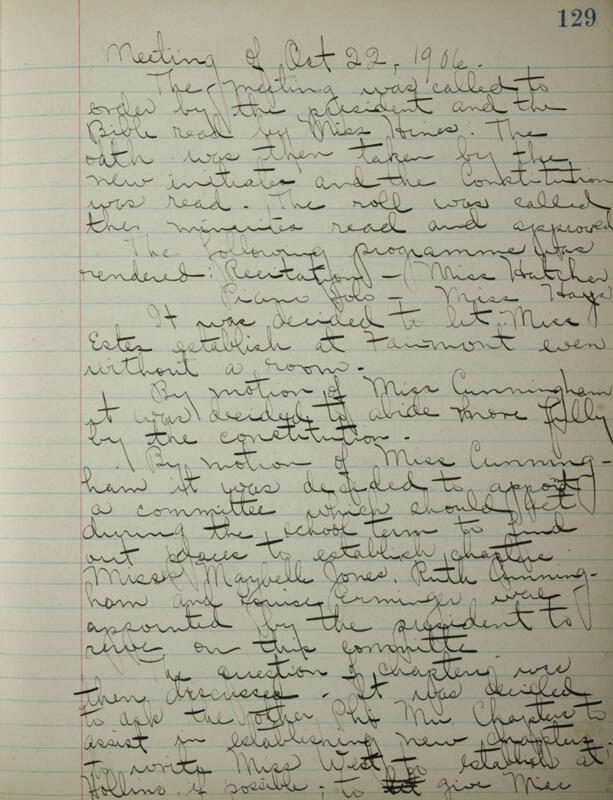 129
Meeting of Oct 22, 1906.
The meeting was called to
order by the president and the
Bible read by Miss Hines. The
oath was then taken by the
new initiates and the Constitution
was read. The roll was called
the minutes read and approved
The following programme was
rendered: Recitation - Miss Hatcher
Piano Solo - Miss Hays
It was decided to let Miss
Estes establish at Fairmont even
without a room.
By motion of Miss Cunningham
it was decided to abide more fully
by the constitution.
By motion of Miss Cunning-
ham it was decided to appoint
a committee which should act
during the school term to find
out places to establish chapters
Misses Maybelle Jones, Ruth Cunning-
ham and Louise Erminger were
appointed by the president to
serve on this committee
question of chapters was
then discussed - It was decided
to ask the other Phi Mu Chapters to
assist in establishing new chapters
to write Miss West to establish at
Hollins if possible; to give Miss